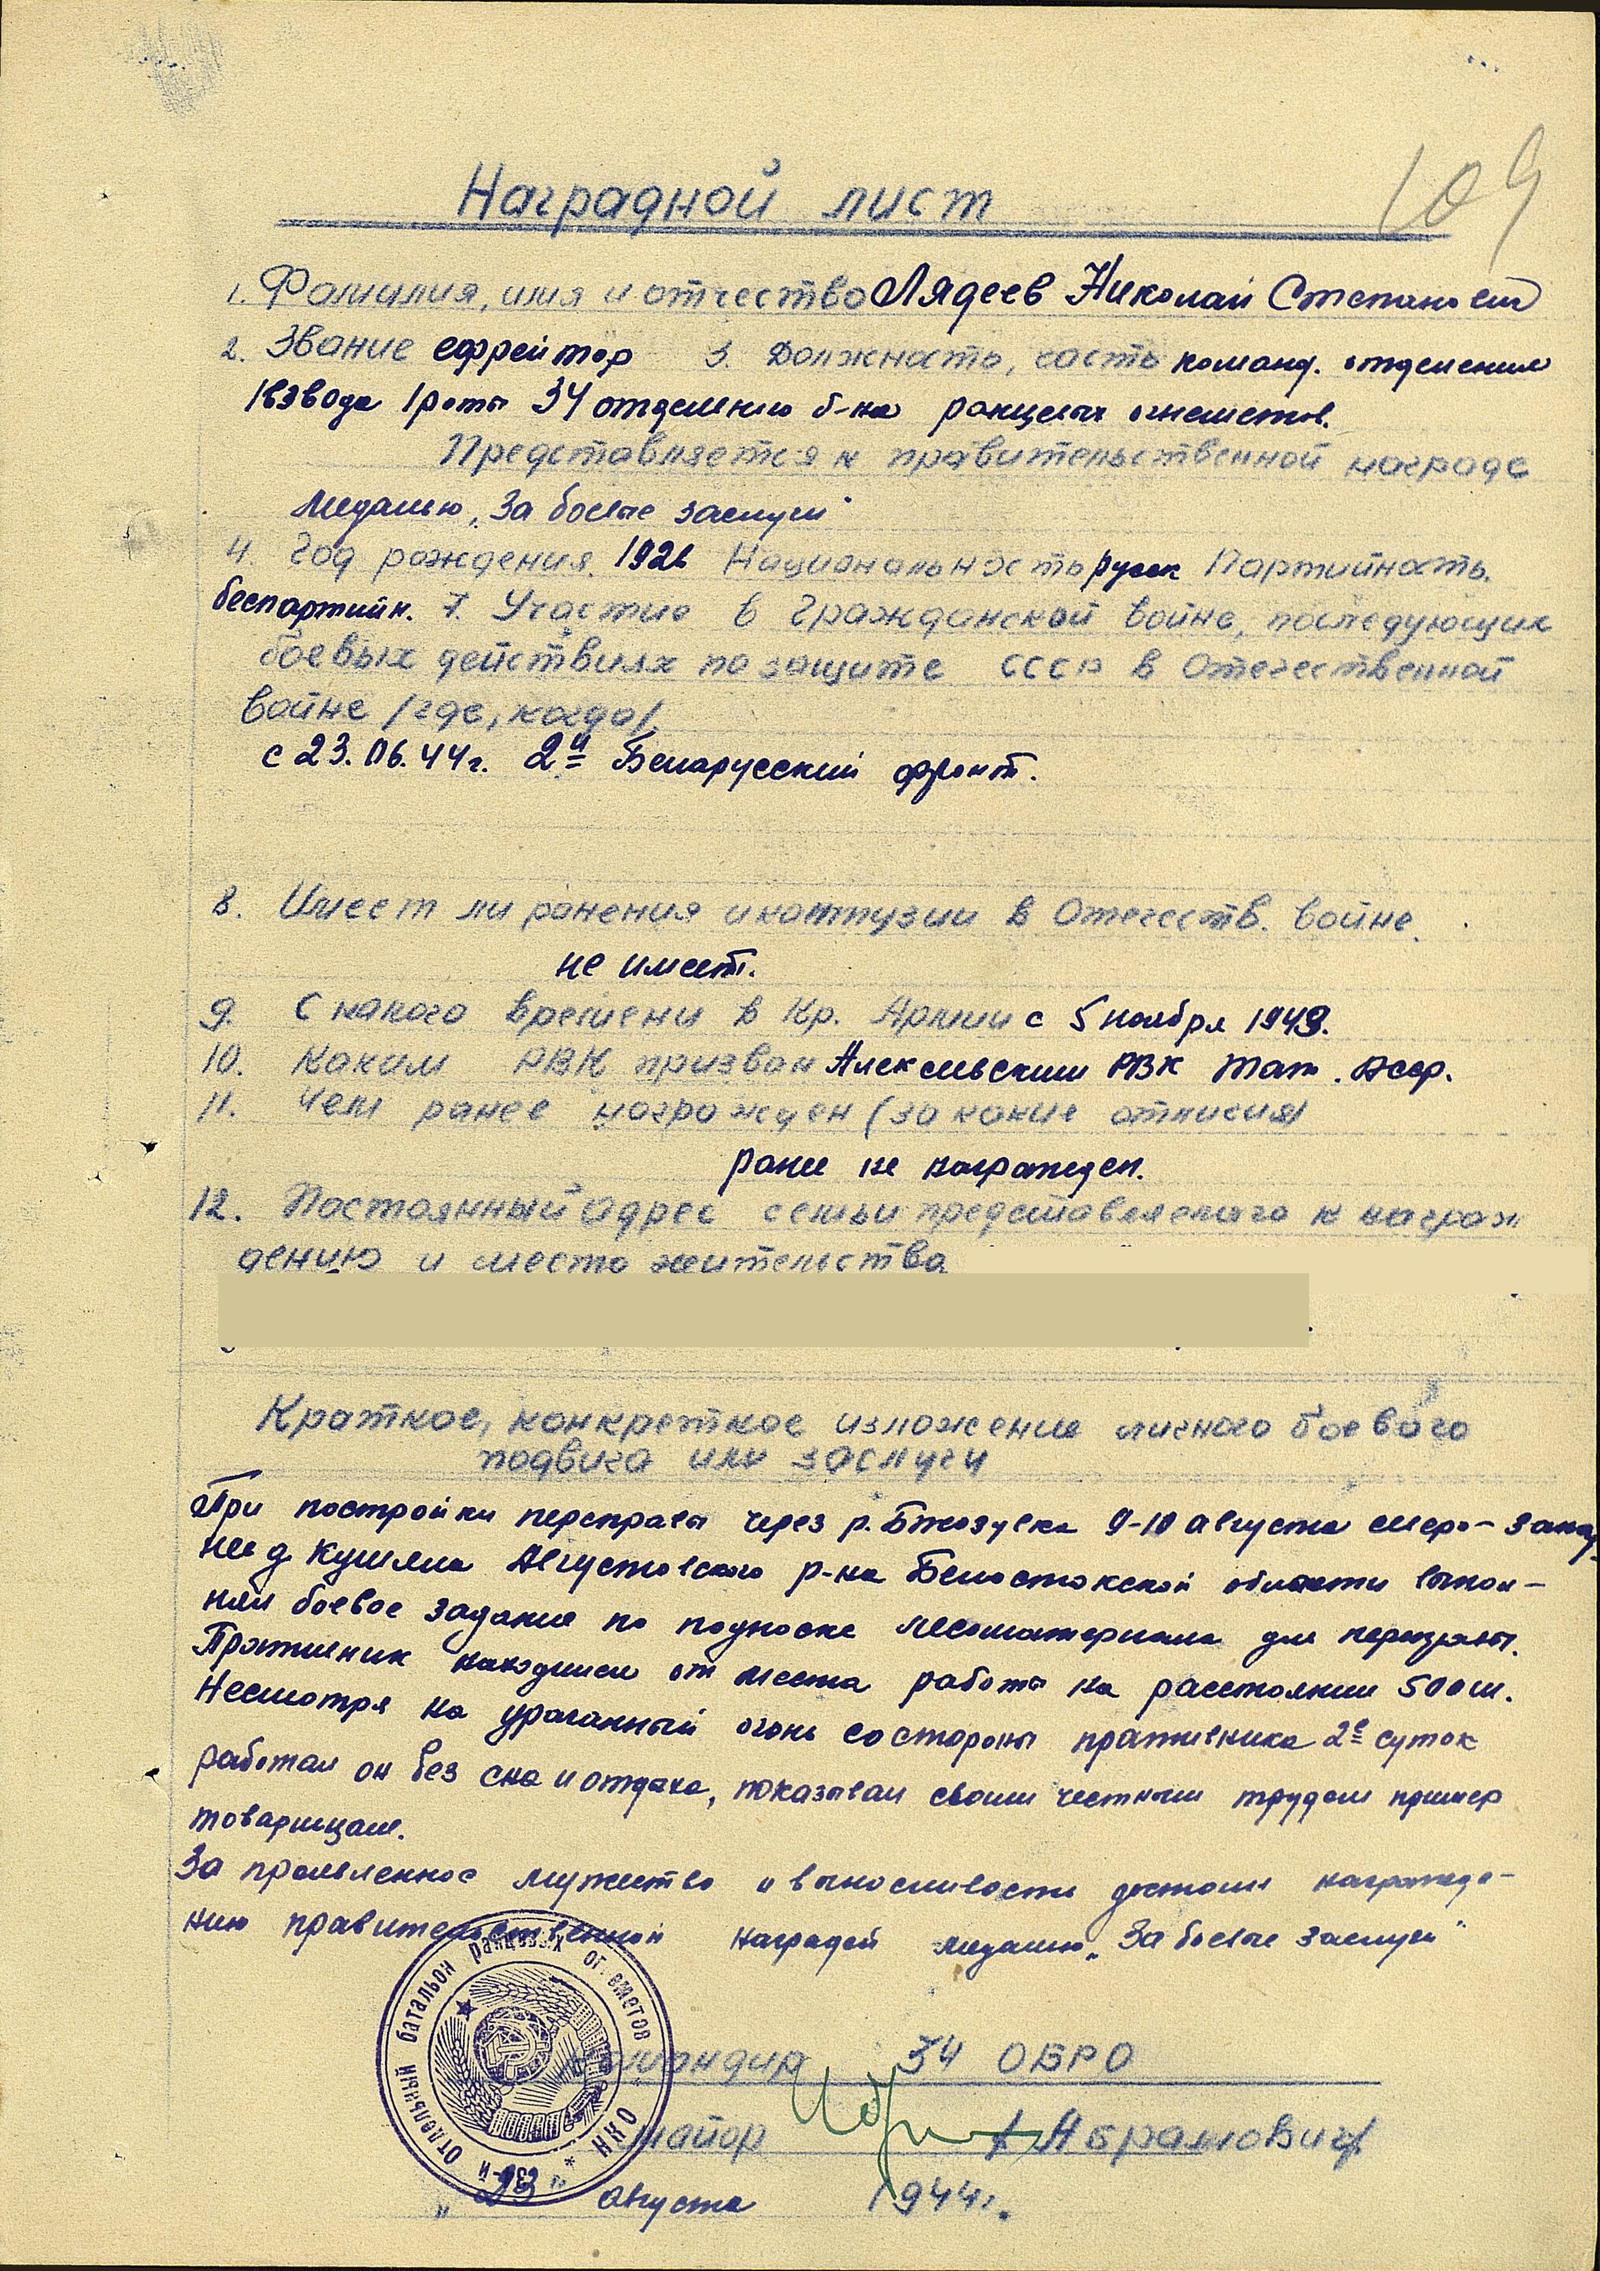 109
Наградной лист
1. Фамилия, имя и отчество Лядеев Николай Степанович
2. Звание ефрейтор 3. Должность, часть команд. отделения
1 взвода 1 роты 34 отдельного б-на ранцевых огнеметов.
Представляется к правительственной награде
медалью „За боевые заслуги"
4. Год рождения. 1926 Национальность русск Партийность.
беспартийн. 7. Участие в гражданской войне, последующих
боевых действиях по защите СССР в Отечественной
войне /где, когда/.
с 23.06.44г. 2й Белорусский фронт.
8. Имеет ли ранения и контузии в Отечеств. войне.
не имеет.
9. С какого времени в Кр. Армии с 5 ноября 1943.
10. Каким РВК призван Алексеевским РВК Тат. Асср.
11. Чем ранее награжден (за какие отличия)
ранее не награжден.
12. Постоянный адрес семьи представляемого к награж
дению и место жительства
Краткое, конкретное изложение личного боевого
подвига или заслуги
При постройки переправы через р. 9-10 августа северо-запад
нее д. Августовского р-на Белостокской области выпол-
нял боевое задание по подноске лесоматериала для переправы.
Противник находился от места работы на расстоянии 500м.
Несмотря на ураганный огонь со стороны противника 2е суток
работал он без сна и отдаха, показывал своим честным трудом пример
товарищам.
За проявленное мужество и выносливости достоин награжде-
нию правительственной наградой медалью „За боевые заслуги"
34-й отдельный батальон ранцевых огнеметов НКО
Командир 34 ОБРО
майор /Абрамович/
„23" августа 1944г.